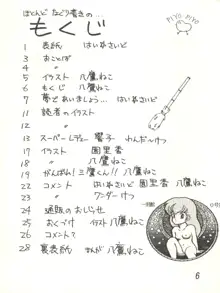 ほとんど なぐり書きの…
もくじ
PIYO PIYO
1 表紙 はいぬさいど
3 おことば
4 〃
5 イラスト 八鷹ねこ
6 もくじ 八鷹ねこ
7 夢であいましょう… はいぬさいど
11 読者のイラスト
13 スーパーレディー 響子 わんだーけつ
17 イラスト 園里香
18 〃 八鷹ねこ
19 がんばれ!三鷹くん!! 八鷹ねこ
22 コメント はいぬさいど 園里香 八鷹ねこ
23 〃 ワンダーけつ
24 通販のおしらせ
25 おくづけ イラスト 八鷹ねこ
26 コメント?
28 裏表紙 まんが 八鷹ねこ
6